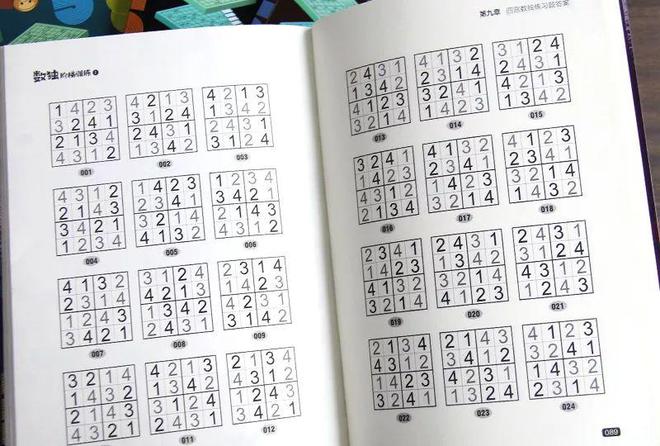 数独 阶梯训练
1 4 2 3
3 2 4 1
2 1 3 4
4 3 1 2
001
4 2 1 3
3 1 2 4
2 4 3 1
1 3 4 2
002
4 2 1 3
1 3 4 2
2 4 3 1
3 1 2 4
003
4 3 1 2
2 1 4 3
3 4 2 1
1 2 3 4
004
1 4 2 3
2 3 1 4
3 2 4 1
4 1 3 2
005
1 2 3 4
3 4 2 1
2 1 4 3
4 3 1 2
006
4 1 3 2
2 3 1 4
1 2 4 3
3 4 2 1
007
3 1 2 4
4 2 1 3
1 3 4 2
2 4 3 1
008
2 3 1 4
1 4 2 3
4 2 3 1
3 1 4 2
009
3 2 1 4
1 4 3 2
2 1 4 3
4 3 2 1
2 4 3 1
1 3 4 2
3 1 2 4
4 2 1 3
011
2 1 3 4
3 4 1 2
1 2 4 3
4 3 2 1
012
第九章 四宫数独练习题答案
2 4 3 1
1 3 4 2
4 1 2 3
3 2 1 4
013
4 1 3 2
2 3 1 4
3 2 4 1
1 4 2 3
014
3 1 2 4
2 4 3 1
4 2 1 3
1 3 4 2
015
3 2 4 1
1 4 2 3
4 3 1 2
2 1 3 4
016
4 1 3 2
2 3 4 1
1 4 2 3
3 2 1 4
017
4 1 2 3
2 3 4 1
1 4 3 2
3 2 1 4
018
2 3 4 1
1 4 2 3
4 1 3 2
3 2 1 4
019
2 4 3 1
1 3 4 2
3 2 1 4
4 1 2 3
020
2 4 3 1
3 1 2 4
4 3 1 2
1 2 4 3
021
2 1 3 4
4 3 1 2
1 4 2 3
3 2 4 1
022
2 4 1 3
3 1 4 2
4 2 3 1
1 3 2 4
023
4 1 2 3
3 2 4 1
2 3 1 4
1 4 3 2
024
089